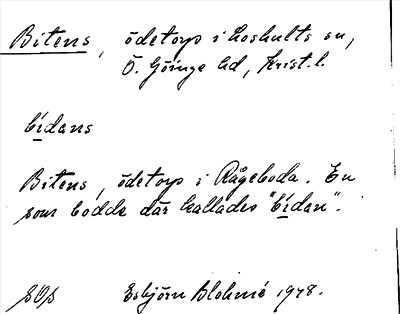 Bitens, ödetorp i Loshults sn,
Ö. Göinge hd, Krist. l.
bídans
Bitens, ödetorp i Rågeboda. En
som bodde där kallades "bídan".
Esbjörn Blohmé 1948.